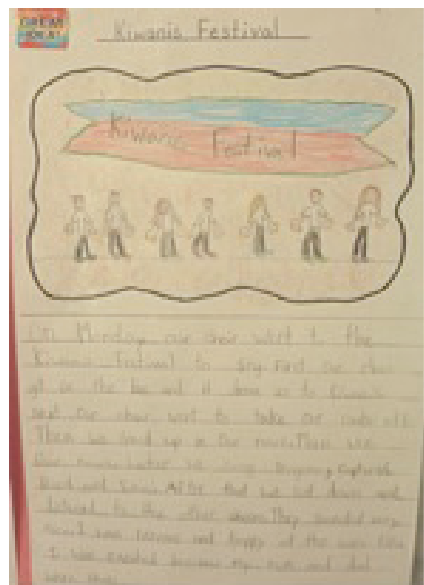 GREAT
IDEA!
Kiwanis Festival
Kiwanis Festival
On Monday our choir went to the
Kiwanis Festival to sing. First our choir
got on the bus and it drove us to Kiwanis
next our choir went to take our coats off.
Then we lined up in our rows. Then we
we sang
and After that we sat down and
listened to the other choirs. They sounded very
I was nervous and happy at the same time
I was excited because my mom and dad
were there